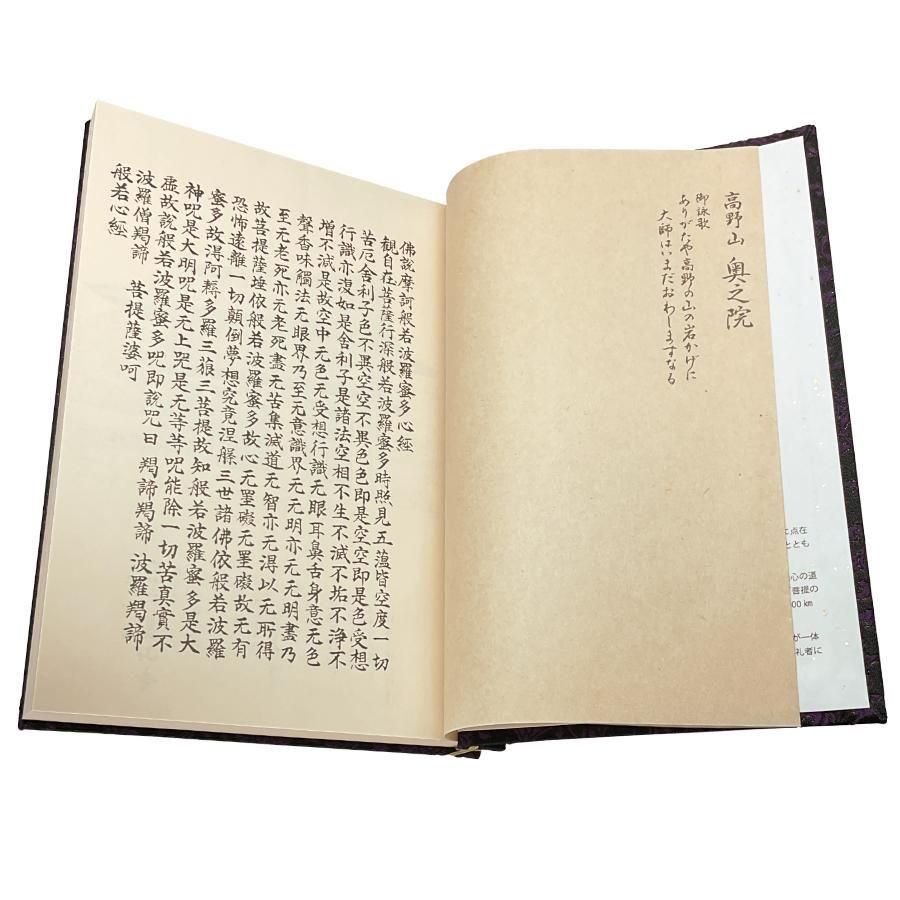 高野山 奥之院
御詠歌
ありがたや高野の山の岩かげに
大師はいまだおわしますなる
点在
ととも
心の道
菩提の
00 km
が一体
礼者に
佛説摩訶般若波羅蜜多心經
観自在菩薩行深般若波羅蜜多時照見五蘊皆空度一切
苦厄舎利子色不異空空不異色色即是空空即是色受想
行識亦復如是舎利子是諸法空相不生不滅不垢不浄不
増不減是故空中无色无受想行識无眼耳鼻舌身意无色
聲香味觸法无眼界乃至无意識界无无明亦无无明盡乃
至无老死亦无老死盡无苦集滅道无智亦无得以无所得
故菩提薩埵依般若波羅蜜多故心无罣礙无罣礙故无有
恐怖遠離一切顛倒夢想究竟涅槃三世諸佛依般若波羅
蜜多故得阿耨多羅三藐三菩提故知般若波羅蜜多是大
神呪是大明呪是无上呪是无等等呪能除一切苦真實不
虚故説般若波羅蜜多呪即説呪曰 羯諦羯諦 波羅羯諦
波羅僧羯諦 菩提薩婆呵
般若心經